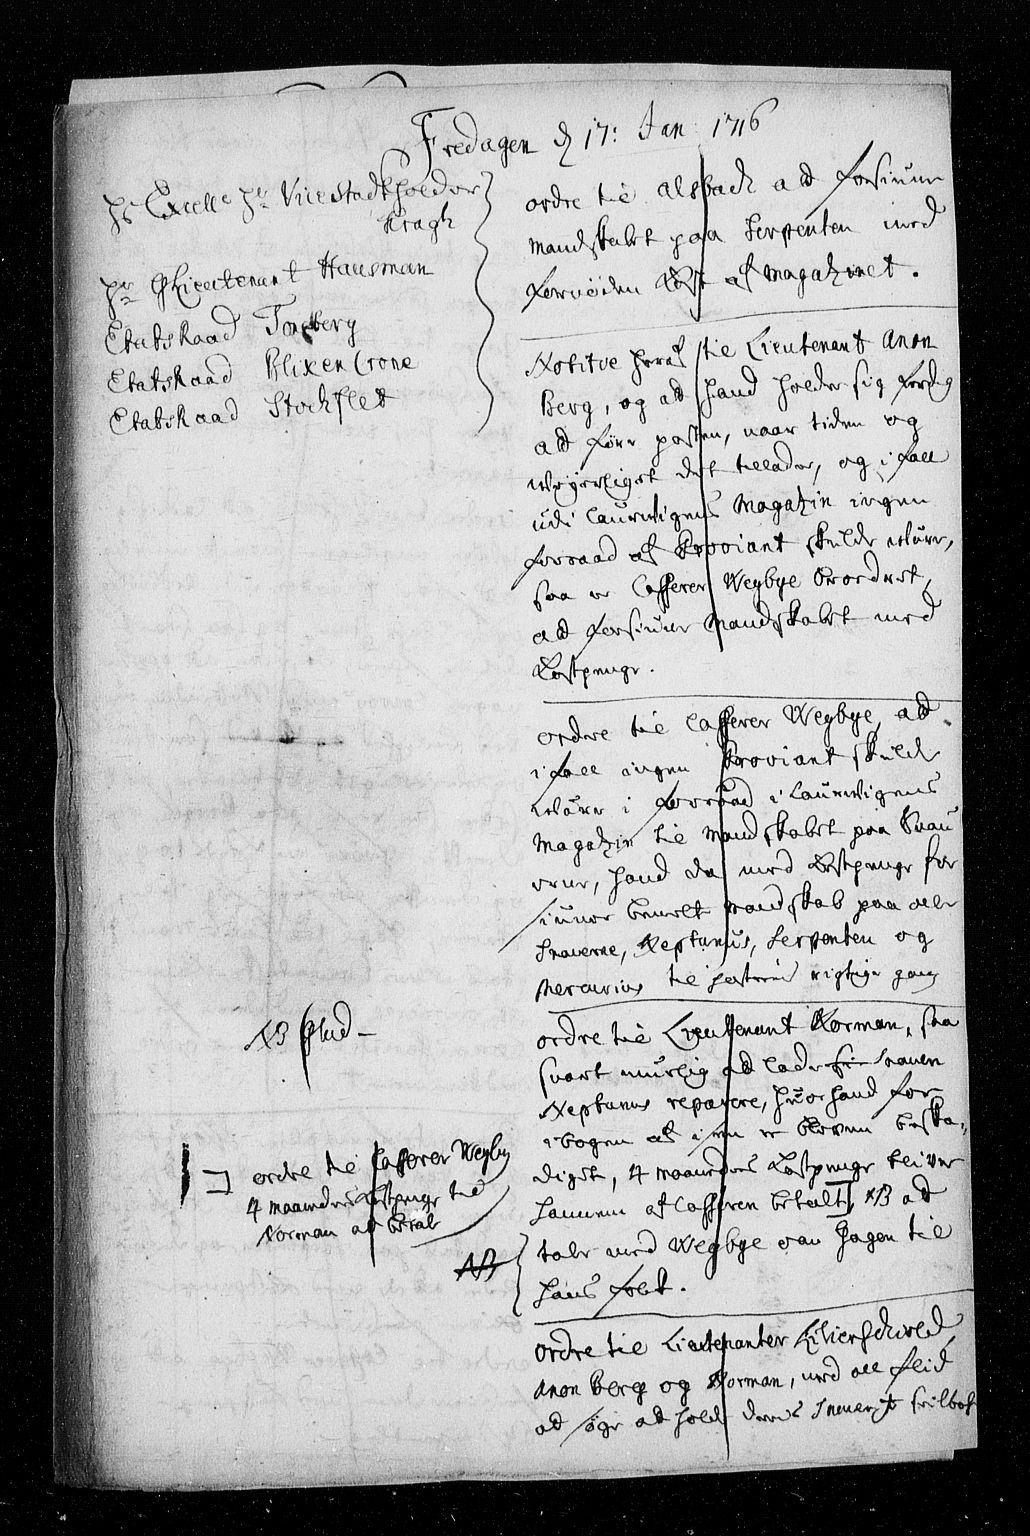 Fredagen d 17: Jan 1716
Hr Excelle Hr Vice Stadtholder
Kragh
Hr GLieutenant Hausman
Etats Raad Tonsberg
Etats Raad Blixencrone
Etats Raad Stockflet
ordre til Alsbach ad forsiune
mandskabet paa Serpenten med
fornöden Kost af Magazinet.
Notitie heraf til Lieutenant Anon
Berg, og ad hand holder sig ferdig
ad före posten, naar tiden og
Weyerliget det tillader, og i fall
udi Laurwigens Magazin ingen
forraad af Proviant skulde være,
saa er Casserer Wegbye beordret,
ad forsiune Mandskabet med
Kostpenge.
ordre til Casserer Wegbye, ad
i fall ingen Proviant skulde
være i forraad i Laurwigens
Magazin til Mandskabet paa Snau
erne, hand da med Kostpenge for
siuner bemelte Mandskab paa alle
Snauerne, Neptunus, Serpenten og
Mercurius til postens rigtige gang
ordre til Lieutenant Norman, saa
snart muelig ad lade Snauen
Neptunus reparere, hvor hand for
i bogen af isen er bleven beska,,
diget, 4 maaneders Kostpenge bliver
hannem af Casseren betalt, NB ad
tale med Wegbye van Hagen til
hans folk.
NB Glud
ordre til Casserer Wegby
4 maaneders Kostpenge til
Norman ad betale
NB
ordre til Lieutenanter Lillienschiold,
Anon Berg og Norman, med all flid
ad söge ad holde deres Snauer